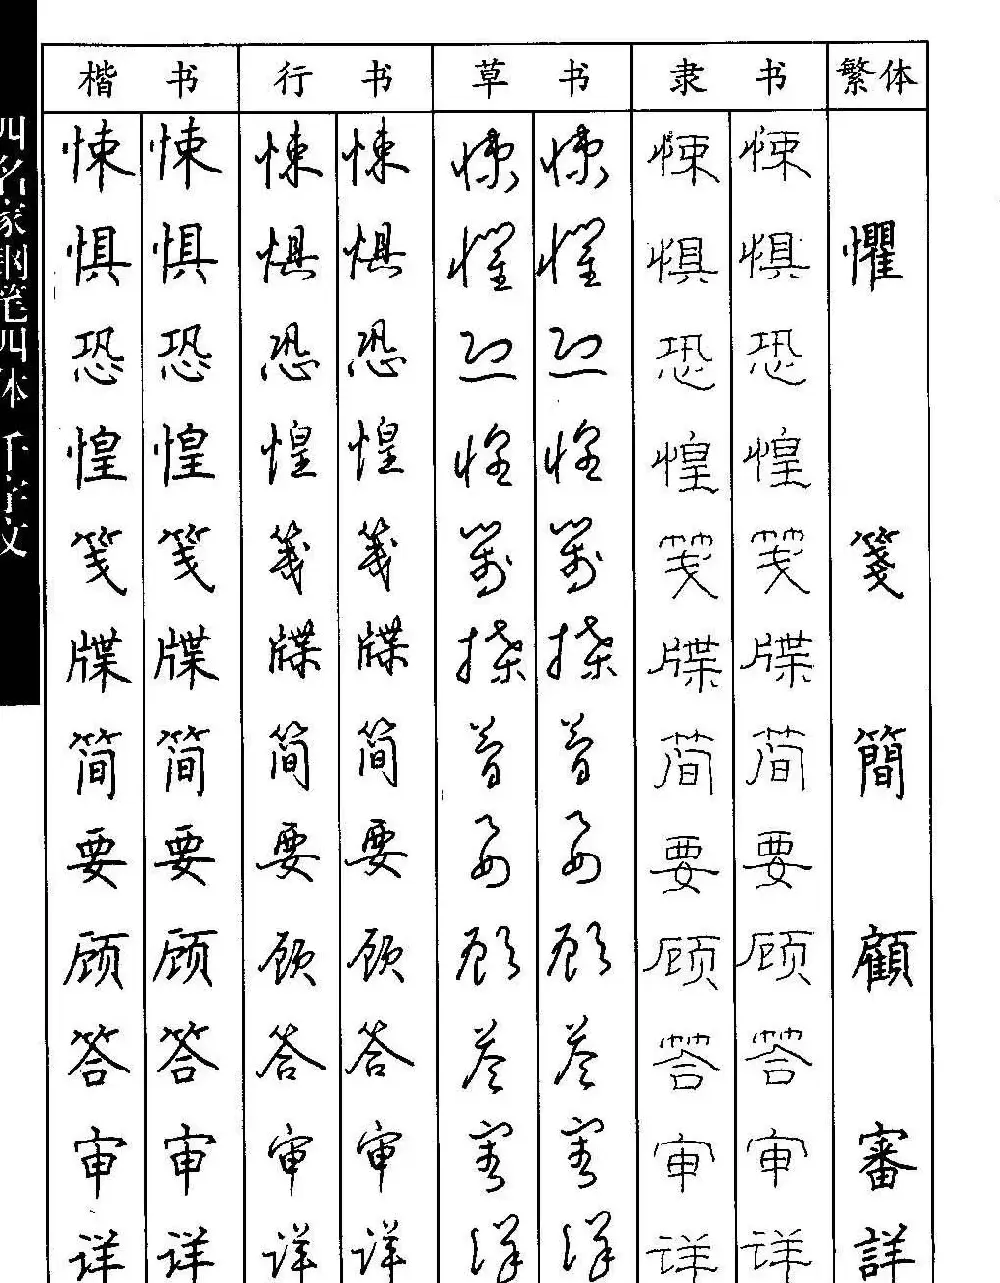 楷书 行书 草书 隶书 繁体
悚 悚 悚 悚 悚 悚 悚 悚
惧 惧 惧 惧 惧 惧 惧 惧 懼
恐 恐 恐 恐 恐 恐 恐 恐
惶 惶 惶 惶 惶 惶 惶 惶
笺 笺 笺 笺 笺 笺 笺 笺 箋
牒 牒 牒 牒 牒 牒 牒 牒
简 简 简 简 简 简 简 简 簡
要 要 要 要 要 要 要 要
顾 顾 顾 顾 顾 顾 顾 顾 顧
答 答 答 答 答 答 答 答
审 审 审 审 审 审 审 审 審
详 详 详 详 详 详 详 详 詳
四名家钢笔四体千字文